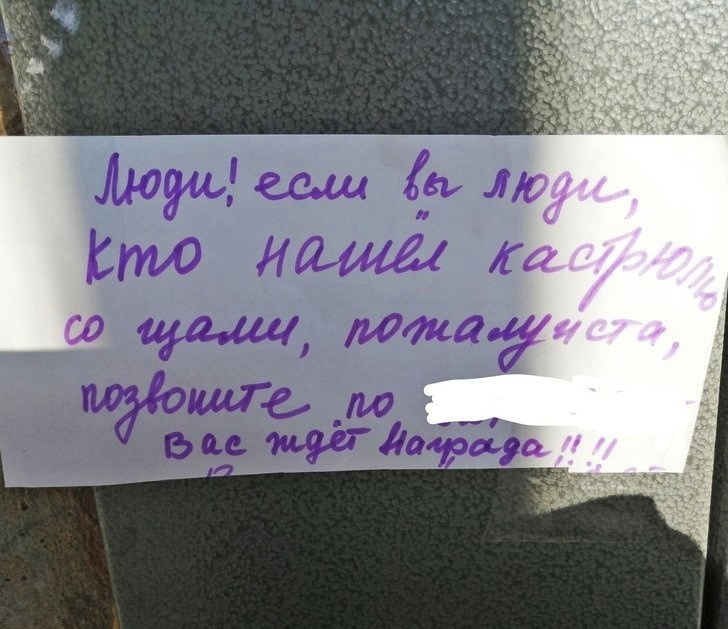 Люди! если вы люди,
кто нашёл кастрюлю
со щами, пожалуйста,
позвоните по
Вас ждёт Награда!!!!